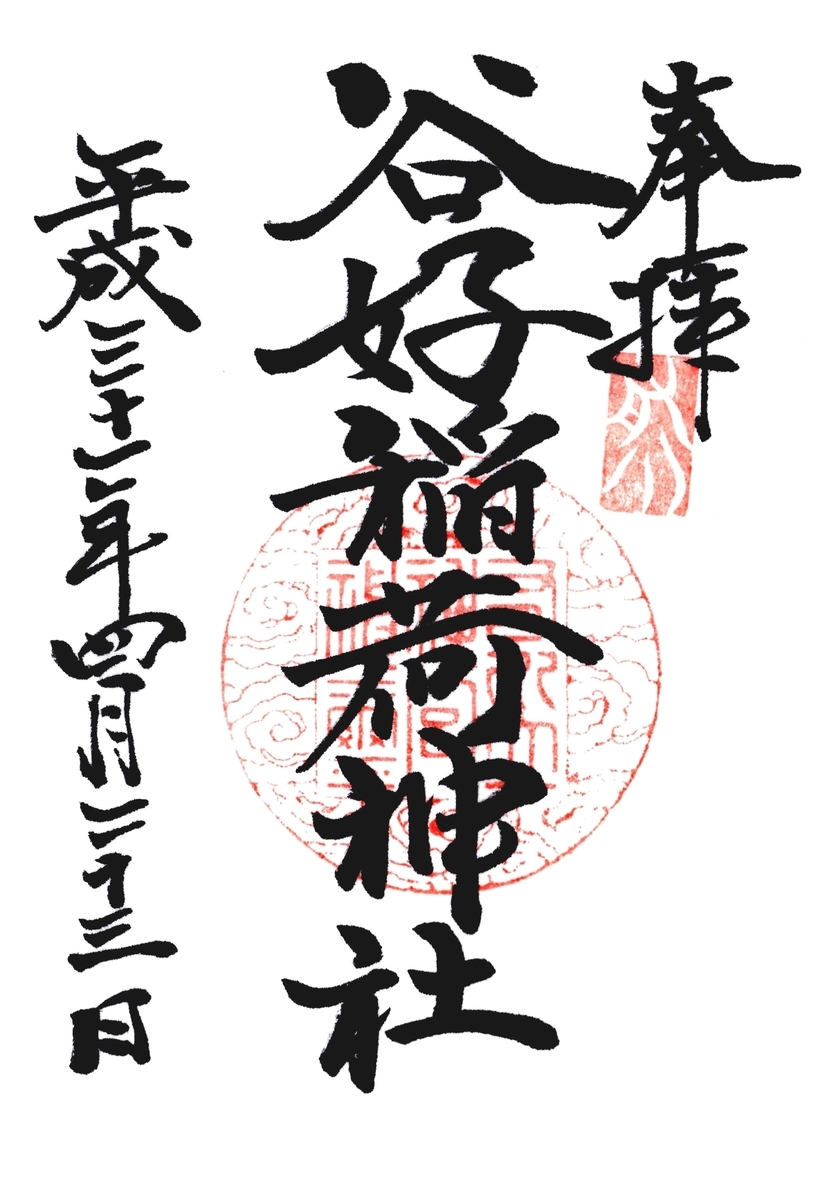 奉拝
谷好稲荷神社
平成三十一年四月二十三日